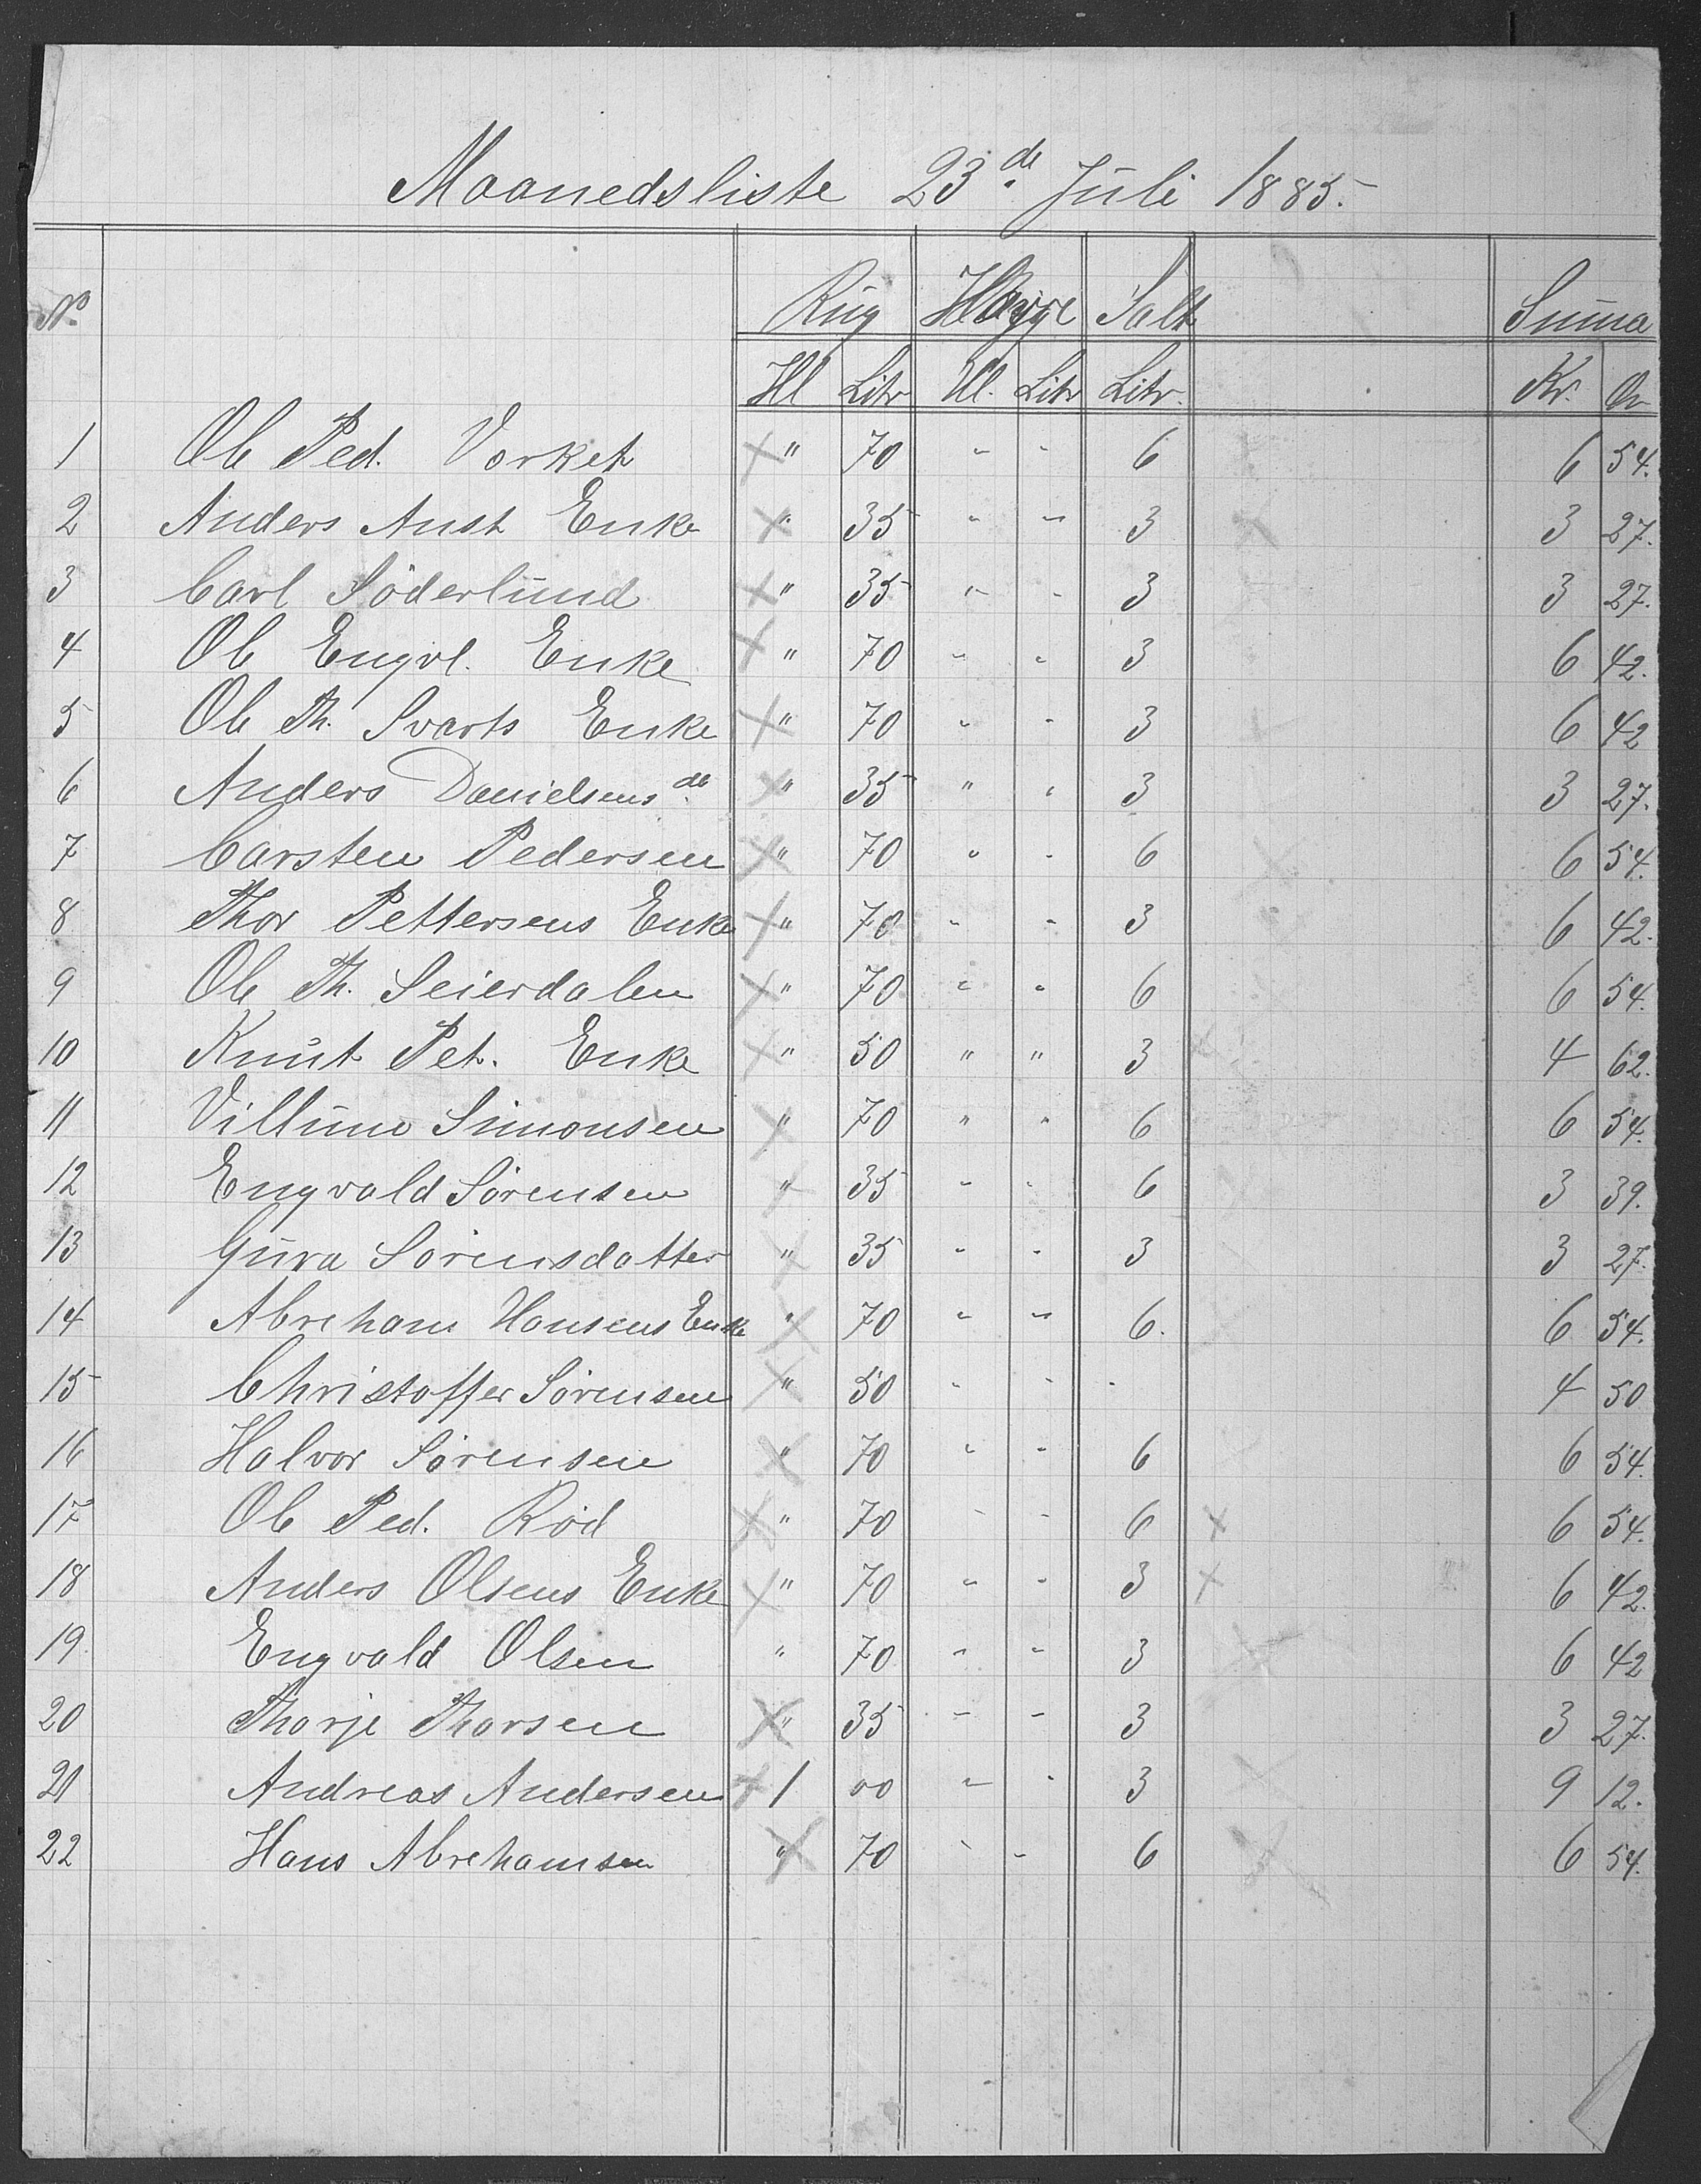 Maanedsliste 23de Juli 1885.
No Rug Salt Suma
Hl Litr Hl. Litr Litr. Kr. Ør
1 Ole Ped. Vorket × " 70 " " 6 × 6 54.
2 Anders Aust Enke × " 35 " " 3 × 3 27.
3 Carl Söderlund × " 35 " " 3 3 27.
4 Ole Engvl. Enke × " 70 " " 3 6 42.
5 Ole Th. Svarts Enke × " 70 " " 3 × 6 42
6 Anders Danielsens do × " 35 " " 3 3 27.
7 Carsten Pedersen × " 70 " " 6 × 6 54.
8 Thor Pettersens Enke × " 70 " " 3 6 42.
9 Ole Th. Seierdalen × " 70 " " 6 6 54.
10 Knut Pet. Enke × " 50 " " 3 × 4 62.
11 Villum Simonsen × " 70 " " 6 6 54.
12 Engvald Sörensen × " 35 " " 6 3 39.
13 Gura Sörensdatter × " 35 " " 3 3 27.
14 Abreham Hansens Enke × " 70 " " 6. 6 54.
15 Christoffer Sörensen × " 50 " " " 4 50
16 Halvor Sörensen × " 70 " " 6 6 54.
17 Ole Ped. Röd × " 70 " " 6 × 6 54.
18 Anders Olsens Enke × " 70 " " 3 × 6 42.
19. Engvald Olsen " 70 " " 3 × 6 42
20 Thorje Thorsen × " 35 " " 3 3 27.
21 Andreas Andersen × 1 00 " " 3 × 9 12.
22 Hans Abrehamsen × " 70 " " 6 × 6 54.